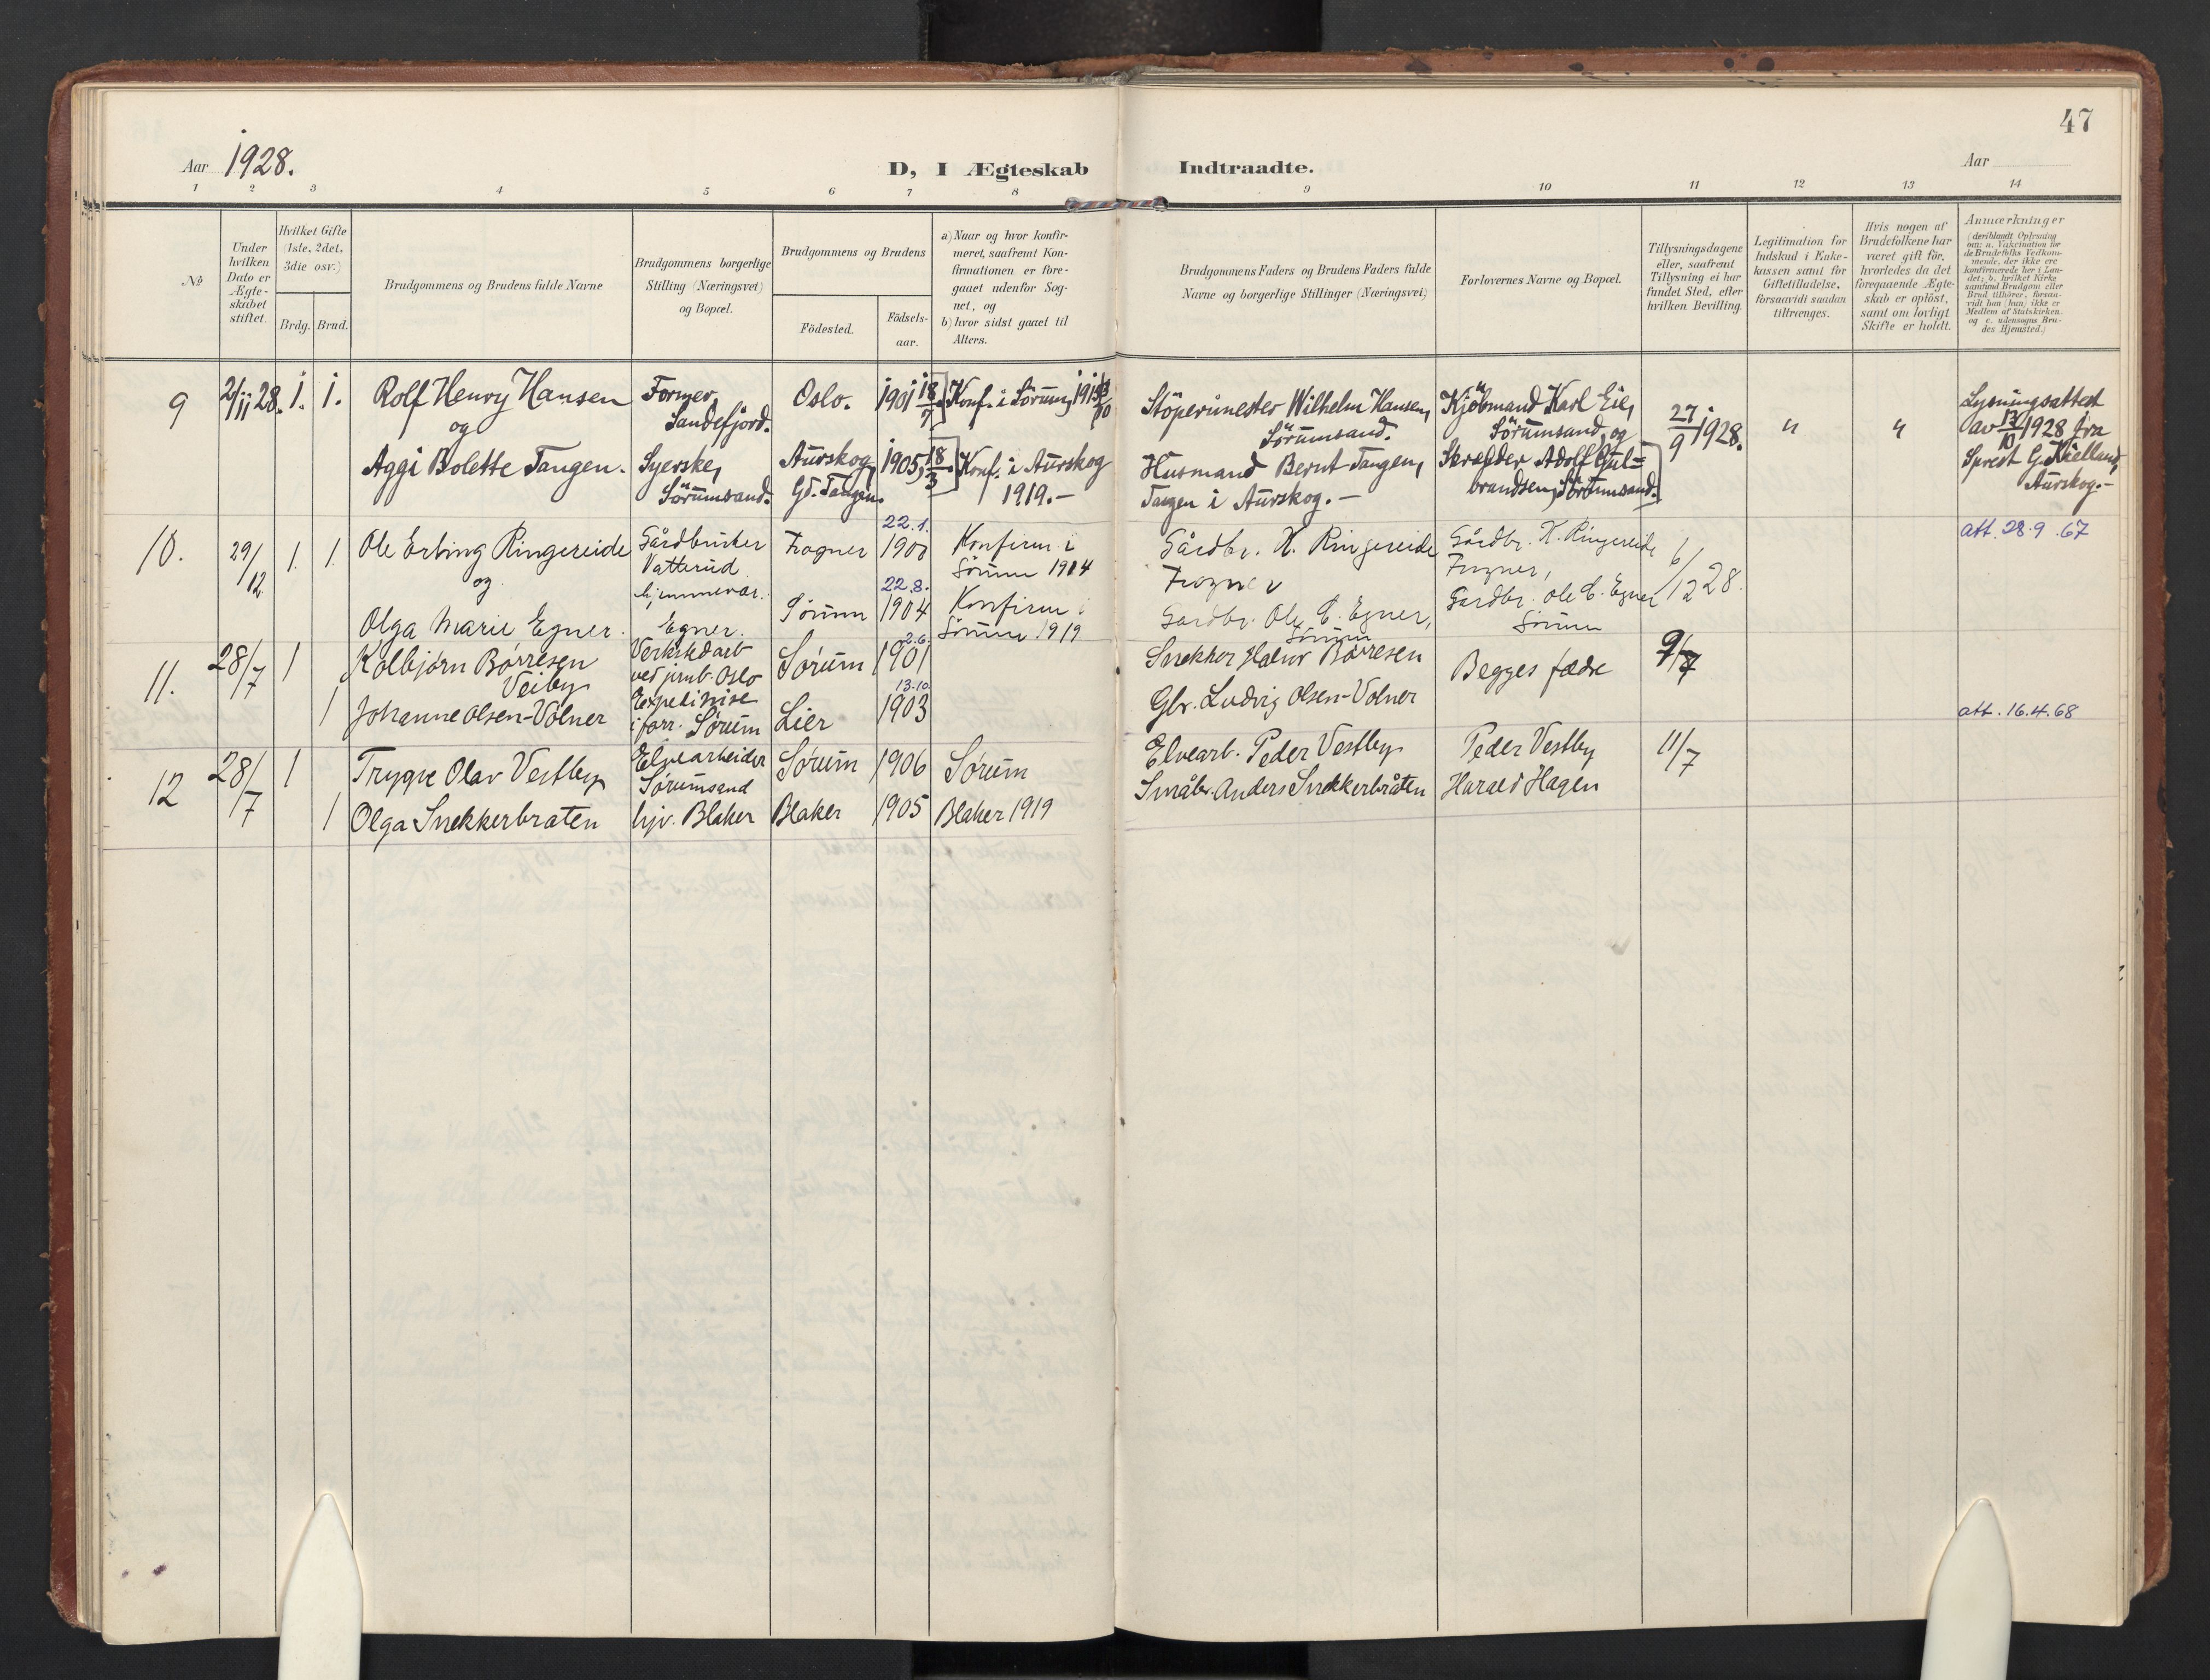 47
Aar 1928.
D, I Ægteskab Indtraadte.
Aar
1 2 3 4 5 6 7 8 9 10 11 12 13 14
No
Under hvilken Dato er Ægte-skabet stiftet.
Hvilket Gifte (1ste, 2det, 3die osv.)
Brdg. Brud.
Brudgommens og Brudens fulde Navne
Brudgommens borgerlige Stilling (Næringsvei) og Bopæl.
Brudgommens og Brudens
Födested.
Födsels-aar.
a) Naar og hvor konfir-meret, saafremt Kon-firmationen er fore-gaaet udenfor Sog-net, og
b) hvor sidst gaaet til Alters.
Brudgommens Faders og Brudens Faders fulde Navne og borgerlige Stillinger (Næringsvei)
Forlovernes Navne og Bopæl.
Tillysningsdagene eller, saafremt Tillysning ei har fundet Sted, efter hvilken Bevilling.
Legitimation for Indskud i Enke-kassen samt for Giftetilladelse, forsaavidt saadan tiltrænges.
Hvis nogen af Brudefolkene har været gift för, hvorledes da det foregaaende Ægte-skab er oplöst, samt om lovligt Skifte er holdt.
Anmærkninger (deriblandt Oplysning om: a. Vakcination for de Brudefolks Vedkom-mende, der ikke ere konfirmerede her i Lan-det; b. hvilket Kirke-samfund Brudgom eller Brud tilhörer, forsaa-vidt han (hun) ikke er Medlem af Statskirken. og c. udensogns Bru-des Hjemsted.)
9 2/11 28. 1. 1. Rolf Henry Hansen Former, Sandefjord. Oslo. 1901 18/7 Konf. i Sörum, Stöperimester Wilhelm Hansen, Sörumsand. Kjöbmand Karl Eie, Sörumsand, og 27/9 1928. " " Lysningsattest av 13/10 1928 fra
og
Aggi Bolette Tangen. Syerske, Sörumsand. Aurskog, Gd. Tangen. 1905, 18/3 Konf. i Aurskog 1919.- Husmand Bernt Tangen, Tangen i Aurskog. - Skræder Adolf Gul=brandsen, Sörumsand. Sprest G. Kielland, Aurskog.-
10. 29/12 1. 1. Ole Erling Ringereide Gårdbruker Vatterud Frogner 22.1. 1900 Konfirm i Sörum 1914 Gårdbr. K. Ringereide Frogner Gårdbr. K. Ringereide Frogner, 6/12 28. att. 28.9.67
og
Olga Marie Egner. hjemmevær. Egner. Sörum 22.8. 1904 Konfirm i Sörum 1919 Gardbr. Ole C. Egner, Sörum Gardbr. Ole C. Egner Sörum
11. 28/7 1 Kolbjörn Börresen Veiby ved jernb. Oslo Sørum 2.6. 1901 Snekker Halvor Börresen Begges fædre 9/7
1 Johanne Olsen-Volner i forr. Sørum Lier 13.10. 1903 Gbr. Ludvig Olsen-Volner att. 16.4.68
12 28/7 1 Trygve Olav Vestby Elvearbeider Sørumsand Sørum 1906 Sørum Elvearb. Peder Vestby Peder Vestby 11/7
1 Olga Snekkerbraten hjv. Blaker Blaker 1905 Blaker 1919 Småbr. Anders Snekkerbråten Harald Hagen